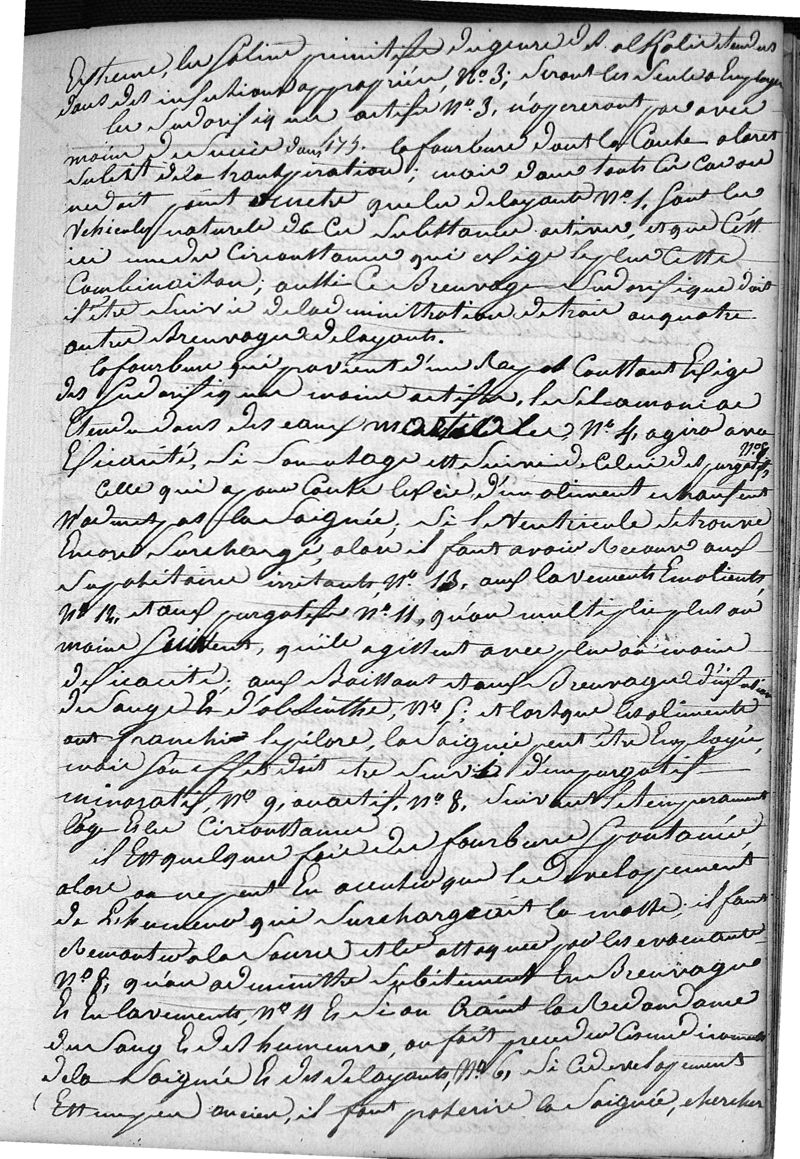 Extreme, les saline primitifs du genre des alkalis etendus
dans des infusions appropriées, N.º 3; seront les seuls a Employer
les sudorifiques actifs N.º 3, n'opereront pas avec
moins de succès dans la fourbure dont la Cause a l'aret
subit de la transpiration; mais dans touts ces cas on
ne doit point omettre que les delayants N.º 1, sont les
vehicules naturels de ces substances actives, et que C'est
ici une des circonstances qui exige le plus cette
Combinaison; aussi ce Breuvage sudorifique doit
il être suivie de l'administration de trois ou quatre
autres Breuvages delayants.
la fourbure qui provient d'un Repos Constant Exige
des sudorifiques moins actifs, le sel amoniac
Etendu dans des eaux martiales, N.º 4, agira avec
Eficacité, si son usage est suivie de celui des purgatifs, N.º 8,
Celle qui a pour Cause l'excès d'un aliment echaufent
N'admet pas la Saignée, si le Ventricule se trouve
Encore surchargé, alors il faut avoir Recours aux
supositoires irritants, N.º 13, aux lavements Emolients,
N.º 12, et aux purgatifs N.º 11, qu'on multiplie plus ou
moins souvent, qu'ils agissent avec plus ou moins
d'eficacité; aux Boissons et aux Breuvages d'infusion
de Sauge Et d'absinthe, N.º 5; et lorsque les aliments
ont franchi le pilore, la Saignée peut être Employée,
mais son effet doit etre suivi d'un purgatif
minoratif, N.º 9, ou actif, N.º 8, suivant le temperament
l'âge Et les circonstances
il Est quelque fois des fourbures spontanées,
alors on ne peut En accuser que le developement
de l'humeur qui surchargeait la masse; il faut
Remonter a la source et les attaquer par les evacuants
N.º 8, qu'on administre subitement En Breuvages
Et En lavements, N.º 11 Et si on Craint la Redondance
du sang Et des humeurs, on fait preceder ces medicaments
de la Saignée Et des delayants, N.º 6, si ce developement
Est un peu ancien, il faut proscrire la Saignée, chercher